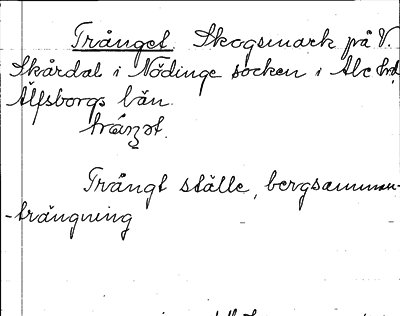 Trånget. Skogsmark på V.
Skårdal i Nödinge socken i Ale hd
Älfsborgs län.
Trångt ställe, bergsamman-
-trängning